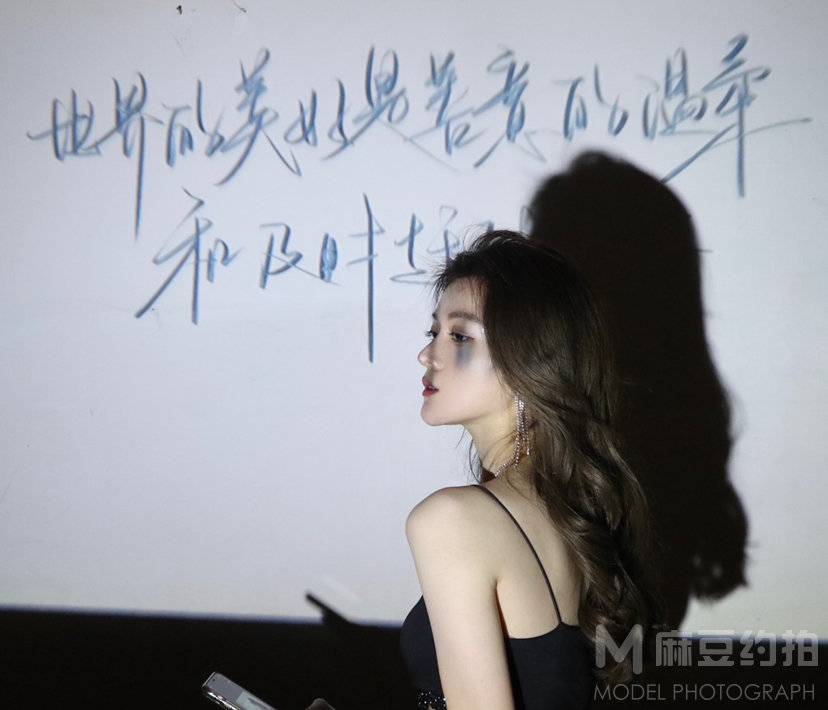 世界的美好是善意的温柔
和及时
麻豆约拍
MODEL PHOTOGRAPH